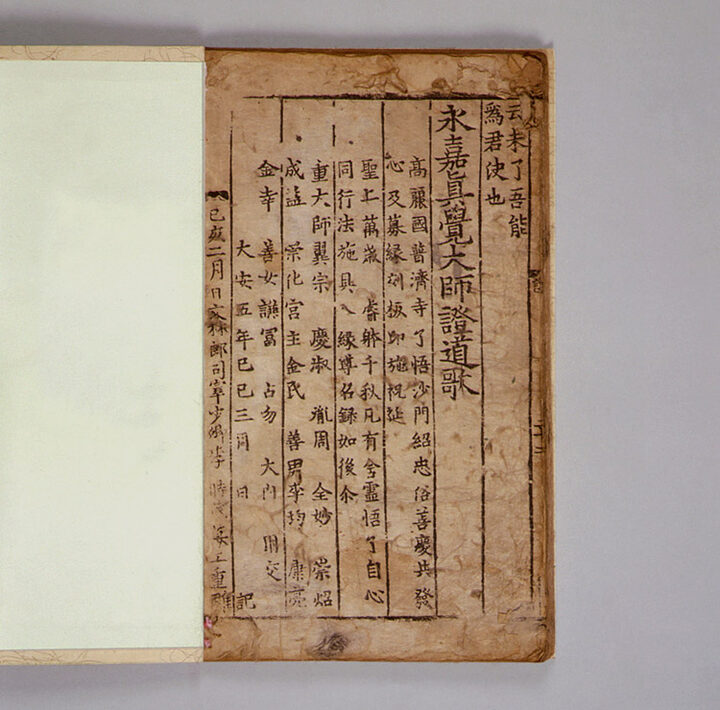 云未了吾能
爲君决也
永嘉眞覺大師證道歌
高麗國普濟寺了悟沙門紹忠俗善慶共發
心及募緣刻板印施祝延
聖上萬歲 躰千秋凡有含靈悟了自心
同行法施具 緣尊名錄如後尒
重大師翼宗 慶淑 胤周 全妙 崇炤
成益 宮主金氏 善男李均 庿亮
金幸 善女譙冨 占勿 大門 用交
大安五年己巳三月 日 記
己亥二月日 郎司宰少 李 時 重雕